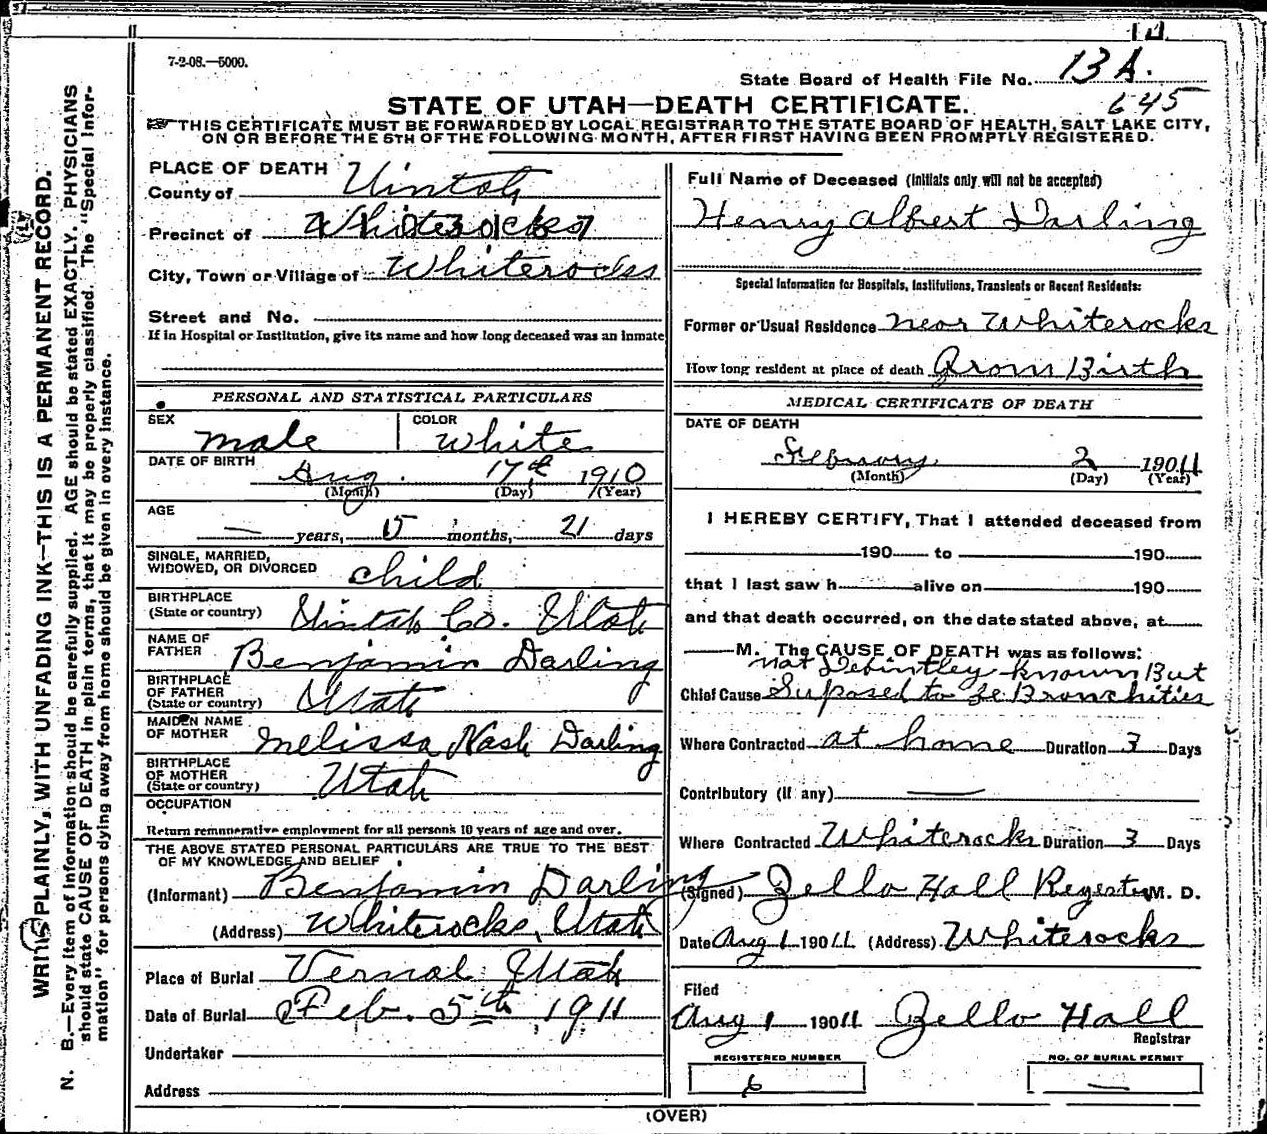 7-2-08.—5000.
State Board of Health File No. 13 A.
645
STATE OF UTAH—DEATH CERTIFICATE.
THIS CERTIFICATE MUST BE FORWARDED BY LOCAL REGISTRAR TO THE STATE BOARD OF HEALTH, SALT LAKE CITY,
ON OR BEFORE THE 5TH OF THE FOLLOWING MONTH, AFTER FIRST HAVING BEEN PROMPTLY REGISTERED.
WRITE PLAINLY, WITH UNFADING INK—THIS IS A PERMANENT RECORD.
N. B.—Every item of information should be carefully supplied. AGE should be stated EXACTLY. PHYSICIANS
should state CAUSE OF DEATH in plain terms, that it may be properly classified. The "Special Infor-
mation" for persons dying away from home should be given in every instance.
PLACE OF DEATH
County of Uintah
Precinct of Whiterocks
City, Town or Village of Whiterocks
Street and No.
If in Hospital or Institution, give its name and how long deceased was an inmate
PERSONAL AND STATISTICAL PARTICULARS
SEX male COLOR white
DATE OF BIRTH Aug. 17th 1910
(Month) (Day) (Year)
AGE
— years, 5 months, 21 days
SINGLE, MARRIED,
WIDOWED, OR DIVORCED child
BIRTHPLACE
(State or country) Uintah Co. Utah
NAME OF
FATHER Benjamin Darling
BIRTHPLACE
OF FATHER
(State or country) Utah
MAIDEN NAME
OF MOTHER Melissa Nash Darling
BIRTHPLACE
OF MOTHER
(State or country) Utah
OCCUPATION
Return remunerative employment for all persons 10 years of age and over.
THE ABOVE STATED PERSONAL PARTICULARS ARE TRUE TO THE BEST
OF MY KNOWLEDGE AND BELIEF
(Informant) Benjamin Darling
(Address) Whiterocks, Utah
Place of Burial Vernal Utah
Date of Burial Feb. 5th, 1911
Undertaker
Address
Full Name of Deceased (Initials only will not be accepted)
Henry Albert Darling
Special Information for Hospitals, Institutions, Transients or Recent Residents:
Former or Usual Residence near Whiterocks
How long resident at place of death From Birth
MEDICAL CERTIFICATE OF DEATH
DATE OF DEATH
February 2 19011
(Month) (Day) (Year)
I HEREBY CERTIFY, That I attended deceased from
190 to 190
that I last saw h alive on 190
and that death occurred, on the date stated above, at
M. The CAUSE OF DEATH was as follows:
not Definitley known But
Chief Cause Suposed to be Bronchities
Where Contracted at home Duration 3 Days
Contributory (if any) —
Where Contracted Whiterocks Duration 3 Days
(Signed) Zello Hall M. D.
Date Aug 1 19011 (Address) Whiterocks
Filed
Aug 1 19011 Zello Hall
Registrar
REGISTERED NUMBER
6
NO. OF BURIAL PERMIT
—
(OVER)